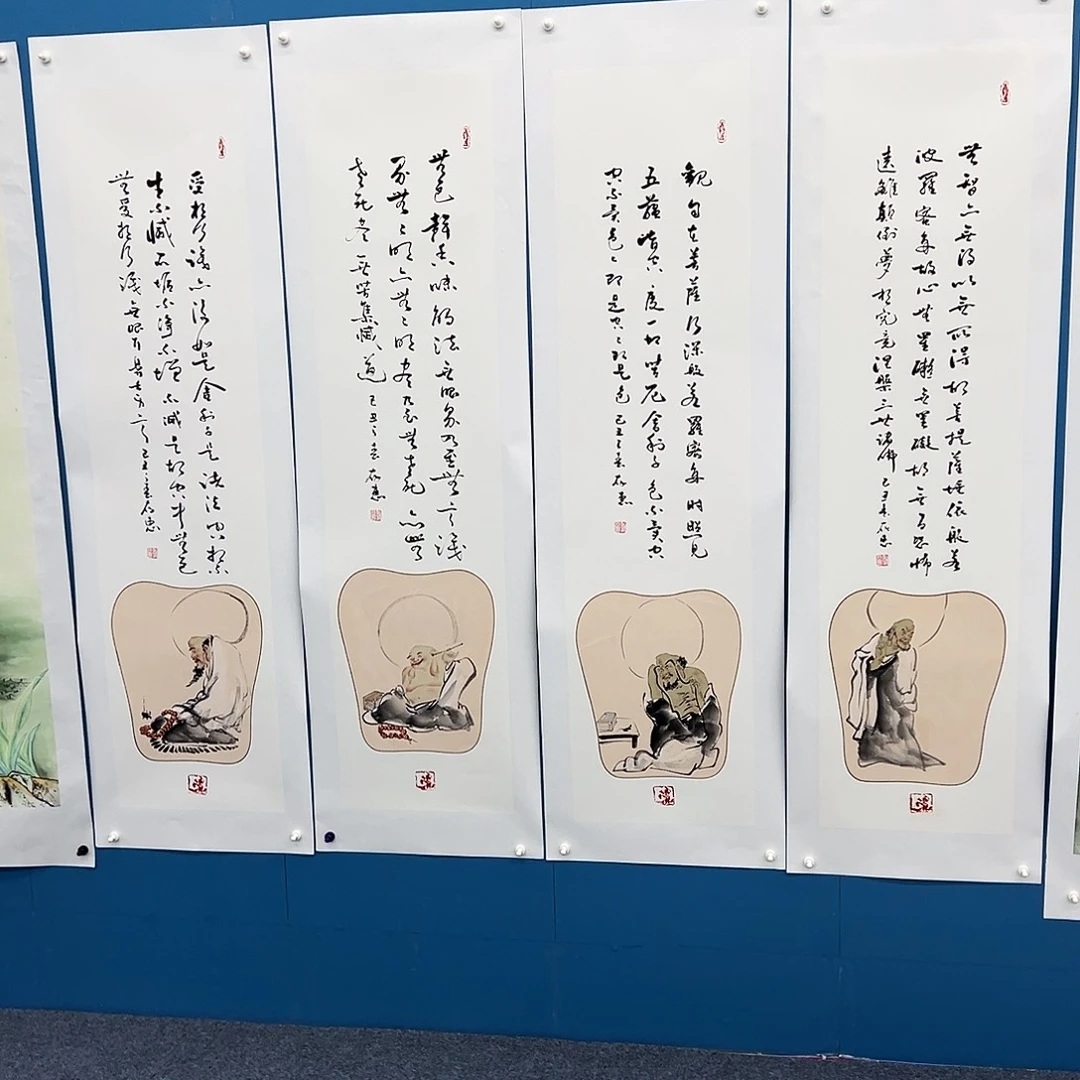 無智亦無得以無所得故菩提薩埵依般若
波羅密多故心無罣礙無罣礙故無有恐怖
遠離顛倒夢想究竟涅槃三世諸佛 己丑春
觀自在菩薩行深般若羅密多時照見
五蘊皆空度一切苦厄舍利子色不異空
空不異色色即是空空即是色 己丑之春
無色聲香味觸法無眼界乃至無意識
界無無明亦無無明盡乃至無老死亦無
老死盡無苦集滅道 己丑之春
受想行識亦復如是舍利子是諸法空相不
生不滅不垢不淨不增不減是故空中無色
無受想行識無眼耳鼻舌身意 己丑春